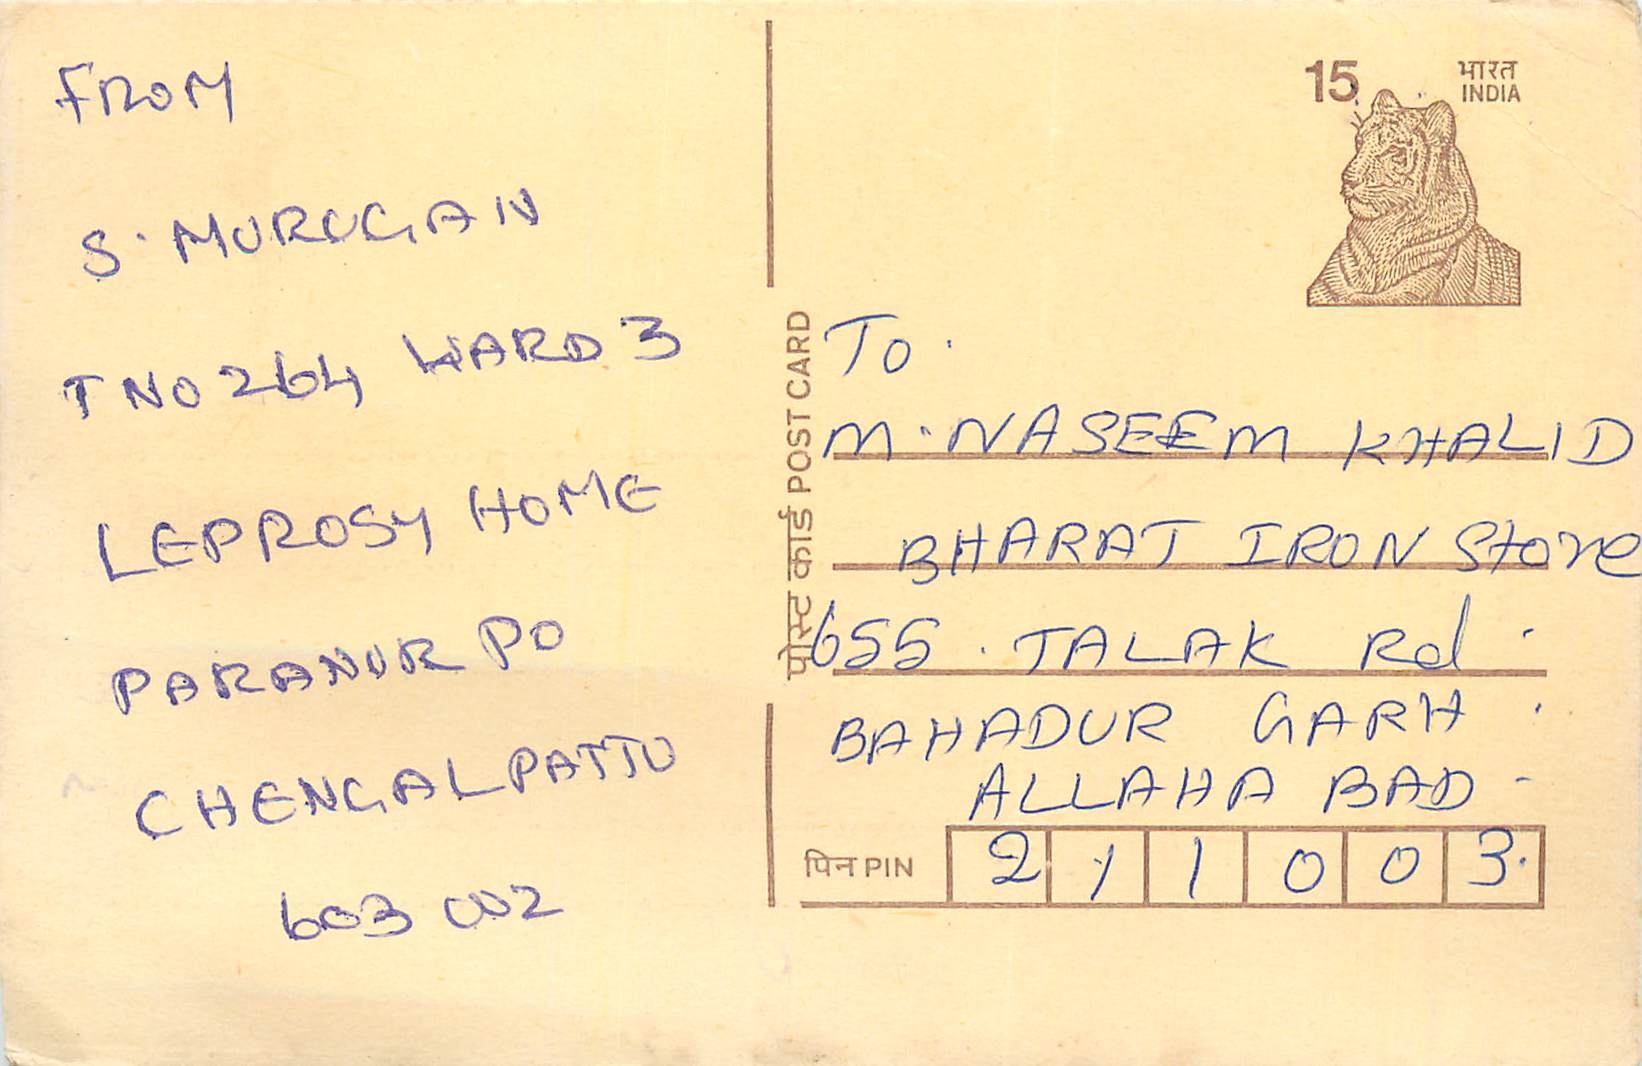 FROM
S. MURUGAN
T NO 264 WARD 3
LEPROSY HOME
PARANUR PO
CHENGALPATTU
603 002
15
भारत
INDIA
पोस्ट कार्ड POST CARD
To.
M. NASEEM KHALID
BHARAT IRON Store
655. TALAK Rd.
BAHADUR GARH.
ALLAHA BAD-
पिन PIN 2 1 1 0 0 3.